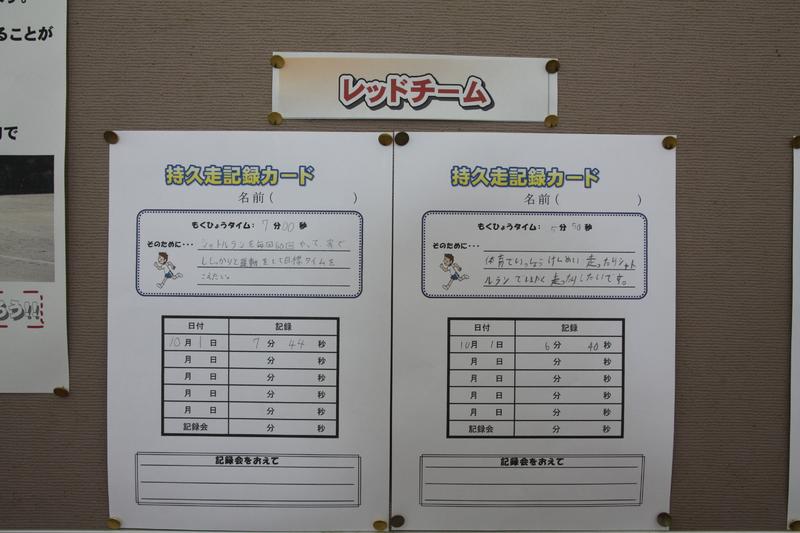 ることが
で
う!!
レッドチーム
持久走記録カード
名前( )
もくひょうタイム: 7分00秒
そのために・・・
シャトルランを毎回60回やって、家で
しっかりと運動をして目標タイムを
こえたい。
日付 記録
10月1日 7分44秒
月 日 分 秒
月 日 分 秒
月 日 分 秒
月 日 分 秒
記録会 分 秒
記録会をおえて
持久走記録カード
名前( )
もくひょうタイム: 5分50秒
そのために・・・
体育でいっしょうけんめい走ったりシャト
ルランではやく走ったりしたいです。
日付 記録
10月1日 6分40秒
月 日 分 秒
月 日 分 秒
月 日 分 秒
月 日 分 秒
記録会 分 秒
記録会をおえて